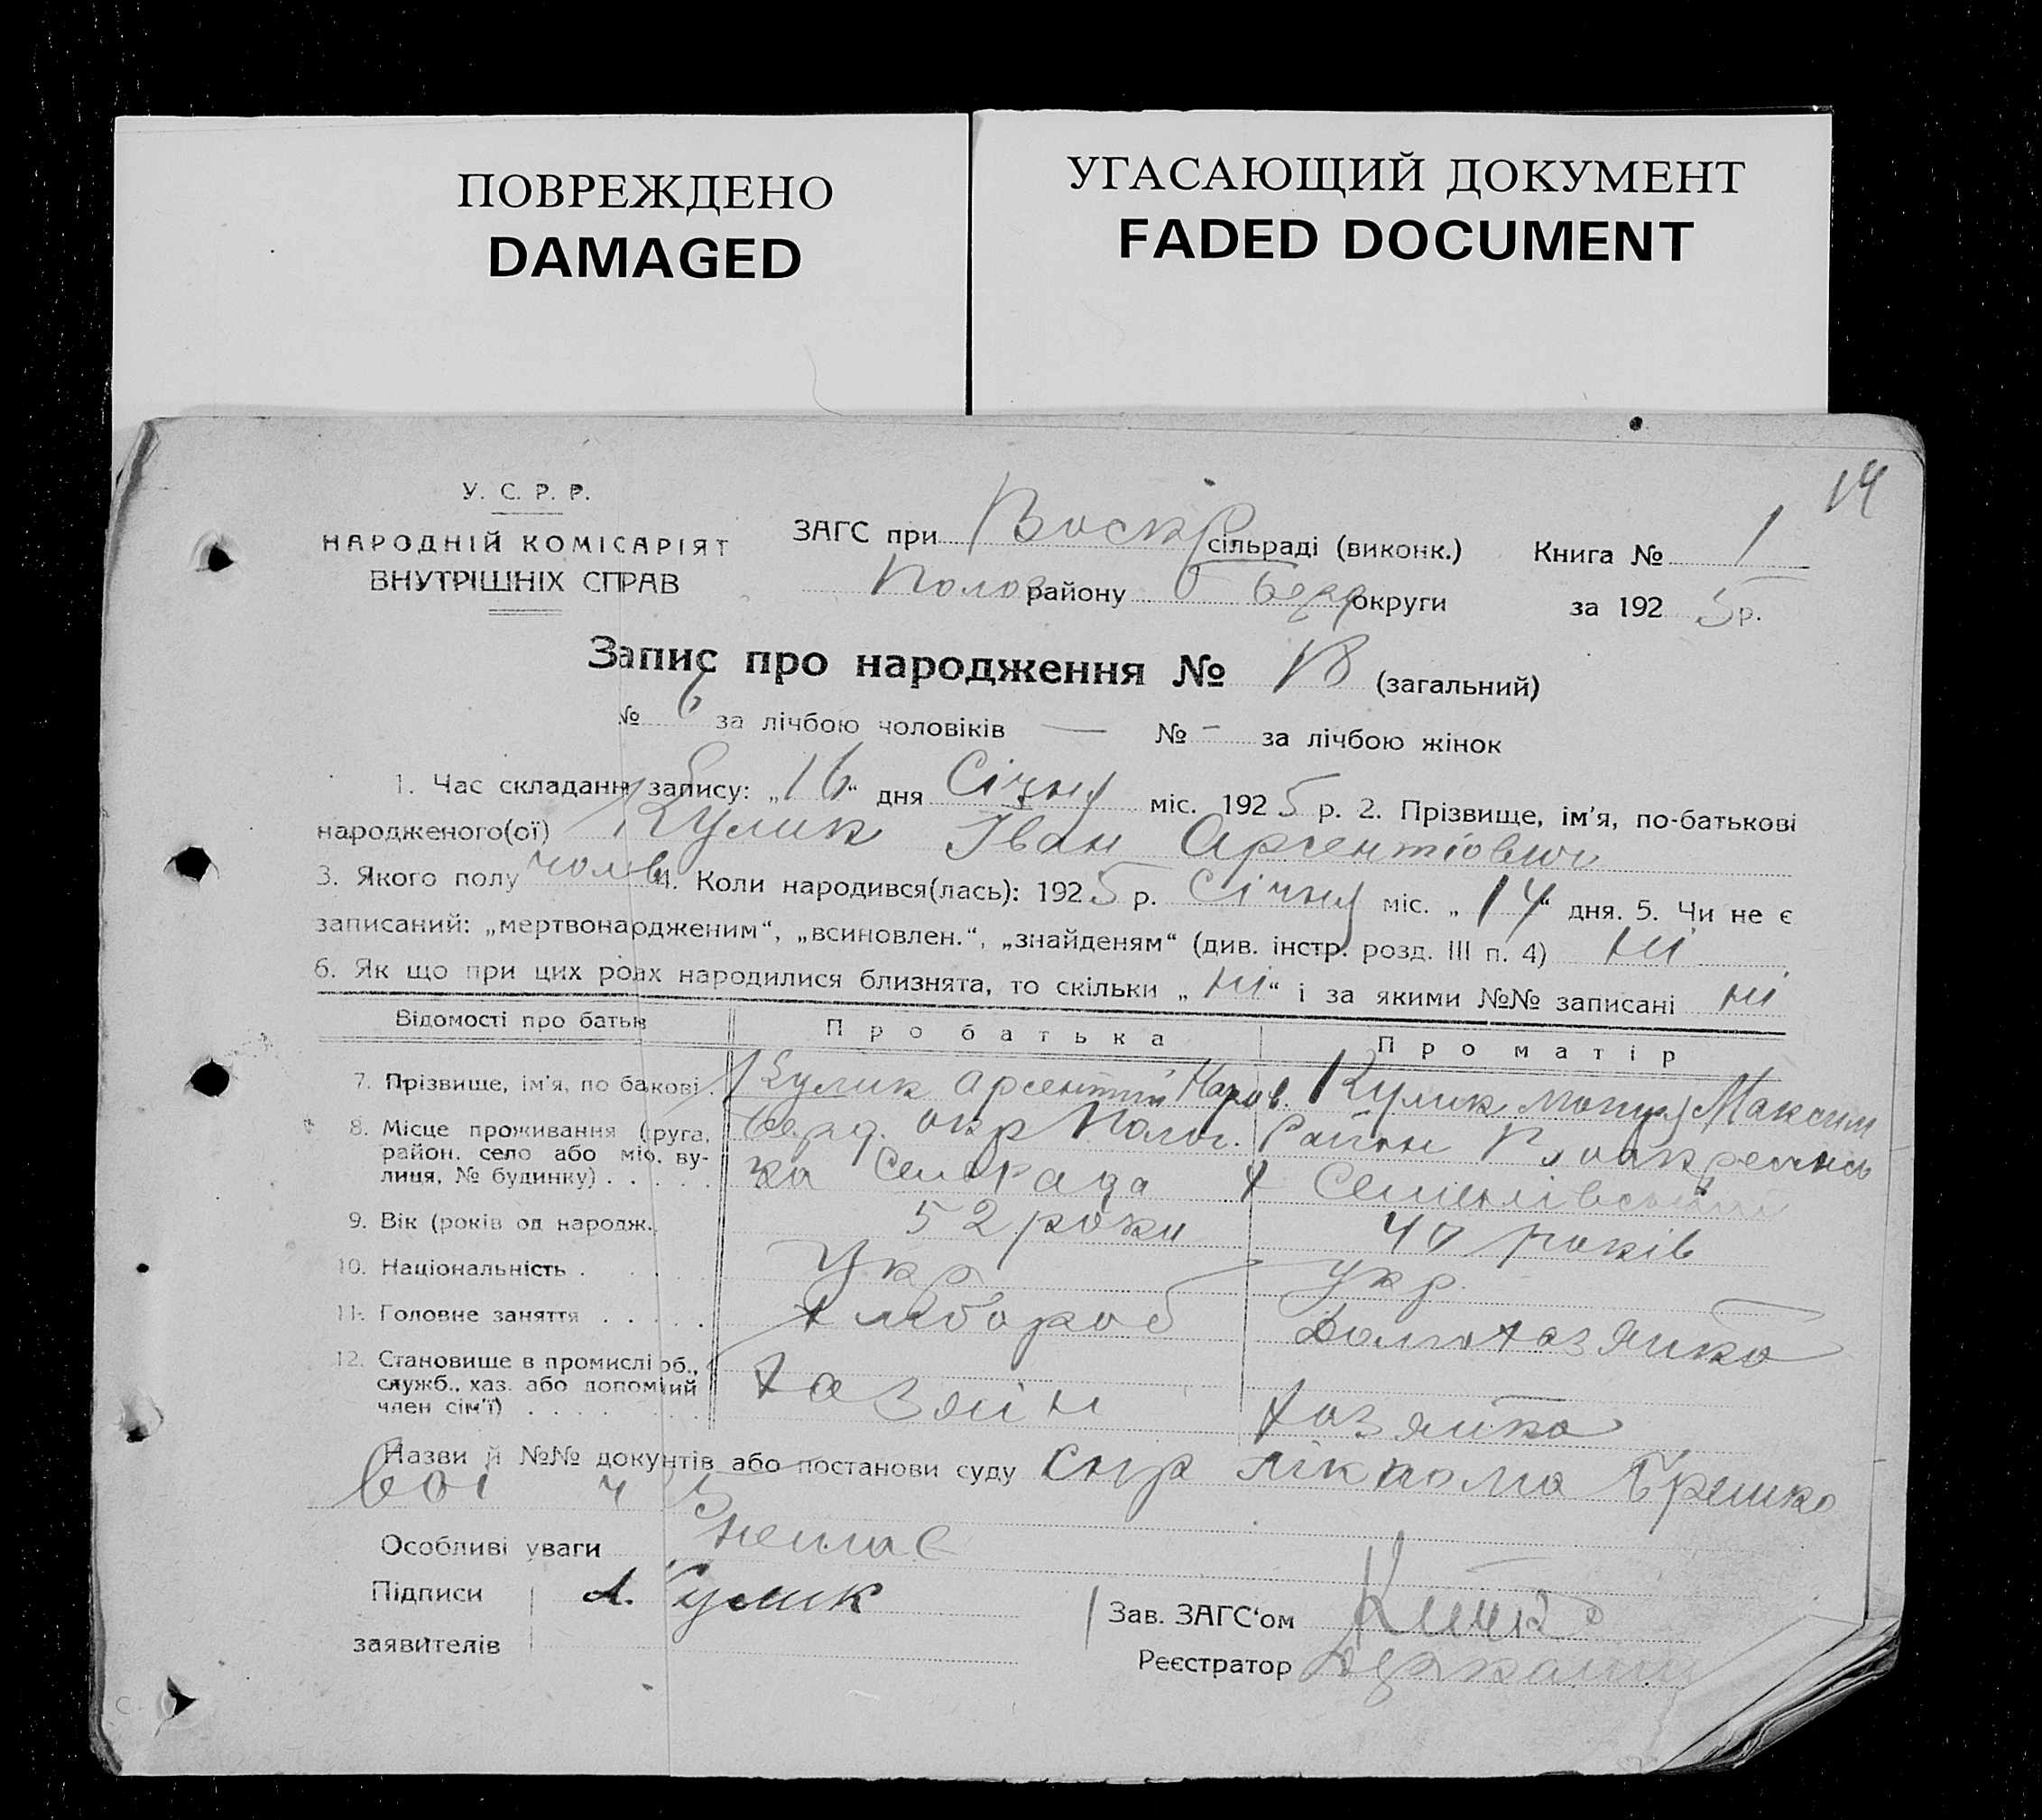 ПОВРЕЖДЕНО
DAMAGED
УГАСАЮЩИЙ ДОКУМЕНТ
FADED DOCUMENT
14
У. С. Р. Р.
НАРОДНІЙ КОМІСАРІЯТ
ВНУТРІШНІХ СПРАВ
ЗАГС при Воскр сільраді (виконк.) Книга № 1
Полог району Берд округи за 1925 р.
Запис про народження № 18 (загальний)
№ 6 за лічбою чоловіків — № – за лічбою жінок
1. Час складанн запису: „16“ дня Січня міс. 1925 р. 2. Прізвище, ім'я, по-батькові
народженого(ої) Кулик Іван Арсентіович
3. Якого полу чолов 4. Коли народився(лась): 1925 р. Січня міс. „14“ дня. 5. Чи не є
записаний: „мертвонародженим“, „всиновлен.“, „знайденям“ (див. інстр. розд. III п. 4) ні
6. Як що при цих родах народилися близнята, то скільки „ні“ і за якими №№ записані ні
Відомості про батьк Про батька Про матір
7. Прізвище, ім'я, по бакові Кулик Арсентий Назов. Кулик Мотря Максим
8. Місце проживання (руга, район, село або міс. вулиця, № будинку) Берд. окр Полог. Район
ка Сельрада
9. Вік (років од народж. 52 роки 40 років
10. Національність Укр Укр.
11. Головне заняття Хлібороб Домохазяйка
12. Становище в промислі об., служб., хаз. або допоміий член сім'ї) Хазяін Хазяйка
Назви й №№ докунтів або постанови суду
Особливі уваги Немає
Підписи
заявителів А. Кулик
Зав. ЗАГС'ом
Реєстратор